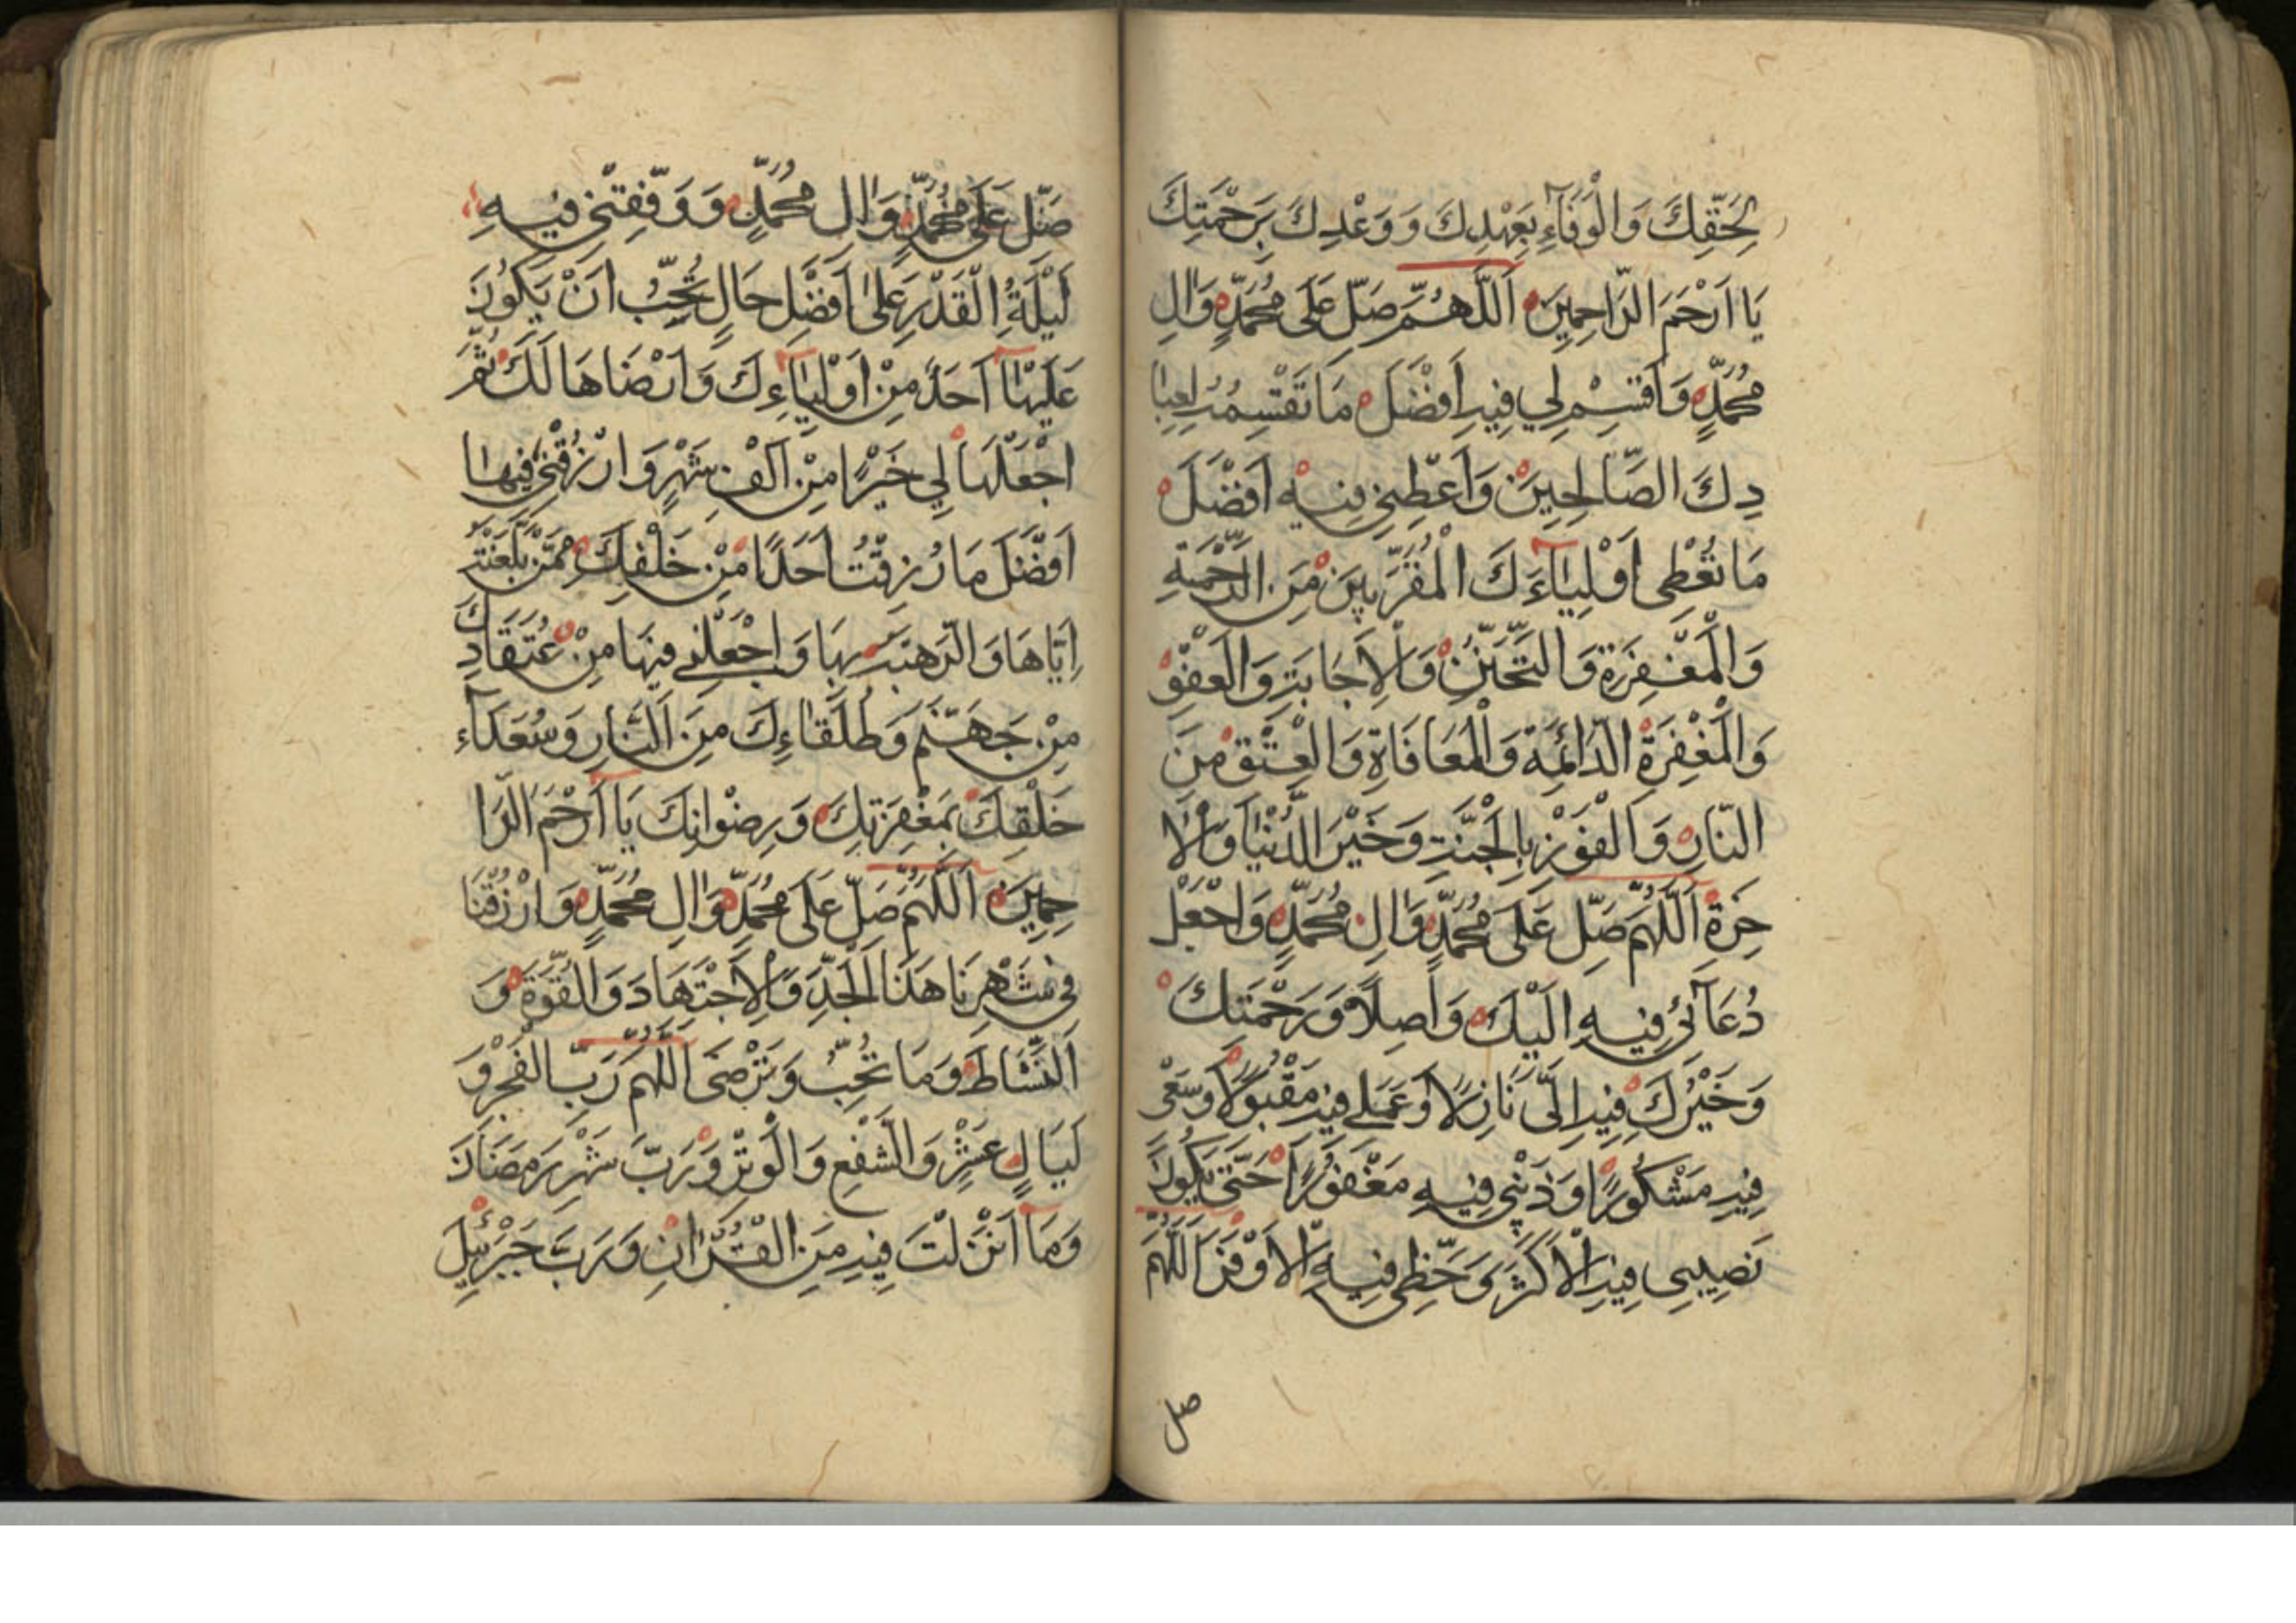 لِحَقِّكَ وَالْوَفَآءِ بِعَهْدِكَ وَ وَعْدِكَ بِرَحْمَتِكَ
يَا اَرْحَمَ الرَّاحِمِيْنَ اَللّٰهُمَّ صَلِّ عَلَى مُحَمَّدٍ وَاٰلِ
مُحَمَّدٍ وَاَقْسِمْ لِي فِيهِ اَفْضَلَ مَا تَقْسِمُهُ لِعِبَا
دِكَ الصَّالِحِيْنَ وَاَعْطِنِي فِيْهِ اَفْضَلَ
مَا تُعْطِى اَوْلِيَآءَكَ الْمُقَرَّبِيْنَ مِنَ الرَّحْمَةِ
وَالْمَغْفِرَةِ وَالتَّحَنُّنِ وَالْاِجَابَةِ وَالْعَفْوِ
وَالْمَغْفِرَةِ الدَّائِمَةِ وَالْمُعَافَاةِ وَالْعِتْقِ مِنَ
النَّارِ وَالْفَوْزِ بِالْجَنَّةِ وَخَيْرِ الدُّنْيَا وَالْاٰ
خِرَةِ اَللّٰهُمَّ صَلِّ عَلَى مُحَمَّدٍ وَاٰلِ مُحَمَّدٍ وَاجْعَلْ
دُعَآئِي فِيهِ اِلَيْكَ وَاصِلًا وَرَحْمَتَكَ
وَخَيْرُكَ فِيهِ اِلَىَّ نَازِلًا وَعَمَلِي فِيهِ مَقْبُولًا وَسَعْيِ
فِيهِ مَشْكُورًا وَذَنْبِي فِيهِ مَغْفُورًا حَتّٰى يَكُونَ
نَصِيبِى فِيهِ الْاَكْثَرَ وَحَظِّى فِيهِ الْاَوْفَرَ اَللّٰهُمَّ
صل
صَلِّ عَلَى مُحَمَّدٍ وَاٰلِ مُحَمَّدٍ وَ وَفِّقْنِي فِيهِ
لَيْلَةِ الْقَدْرِ عَلىٰ اَفْضَلِ حَالٍ تُحِبُّ اَنْ يَكُونَ
عَلَيْهَا اَحَدٌ مِنْ اَوْلِيَآءِكَ وَاَرْضَاهَا لَكَ ثُمَّ
اجْعَلْهَا لِي خَيْرًا مِنْ اَلْفِ شَهْرٍ وَارْزُقْنِي فِيهَا
اَفْضَلَ مَا رُزِقْتُ اَحَدًا مِنْ خَلْقِكَ مِمَّنْ بَلَّغْتَهُ
اِيَّاهَا وَ بِهَا وَاجْعَلْنِي فِيهَا مِنْ عُتَقَاءِكَ
مِنْ جَهَنَّمَ وَطُلَقَاءِكَ مِنَ النَّارِ وَسُعَدَآءِ
خَلْقِكَ بِمَغْفِرَتِكَ وَرِضْوَانِكَ يَا اَرْحَمَ الرَّا
حِمِيْنَ اَللّٰهُمَّ صَلِّ عَلَى مُحَمَّدٍ وَاٰلِ مُحَمَّدٍ وَارْزُقْنَا
فِي شَهْرِنَا هَذَا الْجِدَّ وَالْاِجْتِهَادَ وَالْقُوَّةَ وَ
النَّشَاطَ وَمَا تُحِبُّ وَتَرْضَى اَللّٰهُمَّ رَبَّ الْفَجْرِ وَ
لَيَالٍ عَشْرٍ وَالشَّفْعِ وَالْوَتْرِ وَرَبَّ شَهْرِ رَمَضَانَ
وَمَا اَنْزَلْتَ فِيهِ مِنَ الْقُرْاٰنِ وَرَبَّ جَبْرَئِيلَ